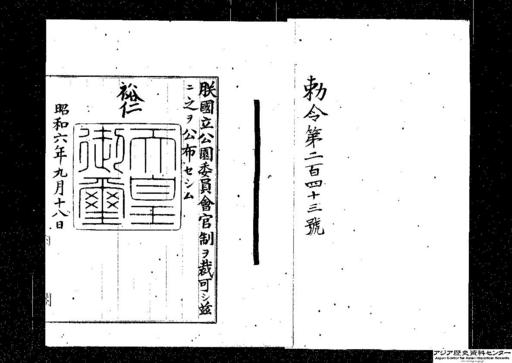 勅令第二百四十三號
朕國立公園委員會官制ヲ裁可シ茲
ニ之ヲ公布セシム
裕仁
天皇
御璽
昭和六年九月十八日
アジア歴史資料センター
Japan Center for Asian Historical Records